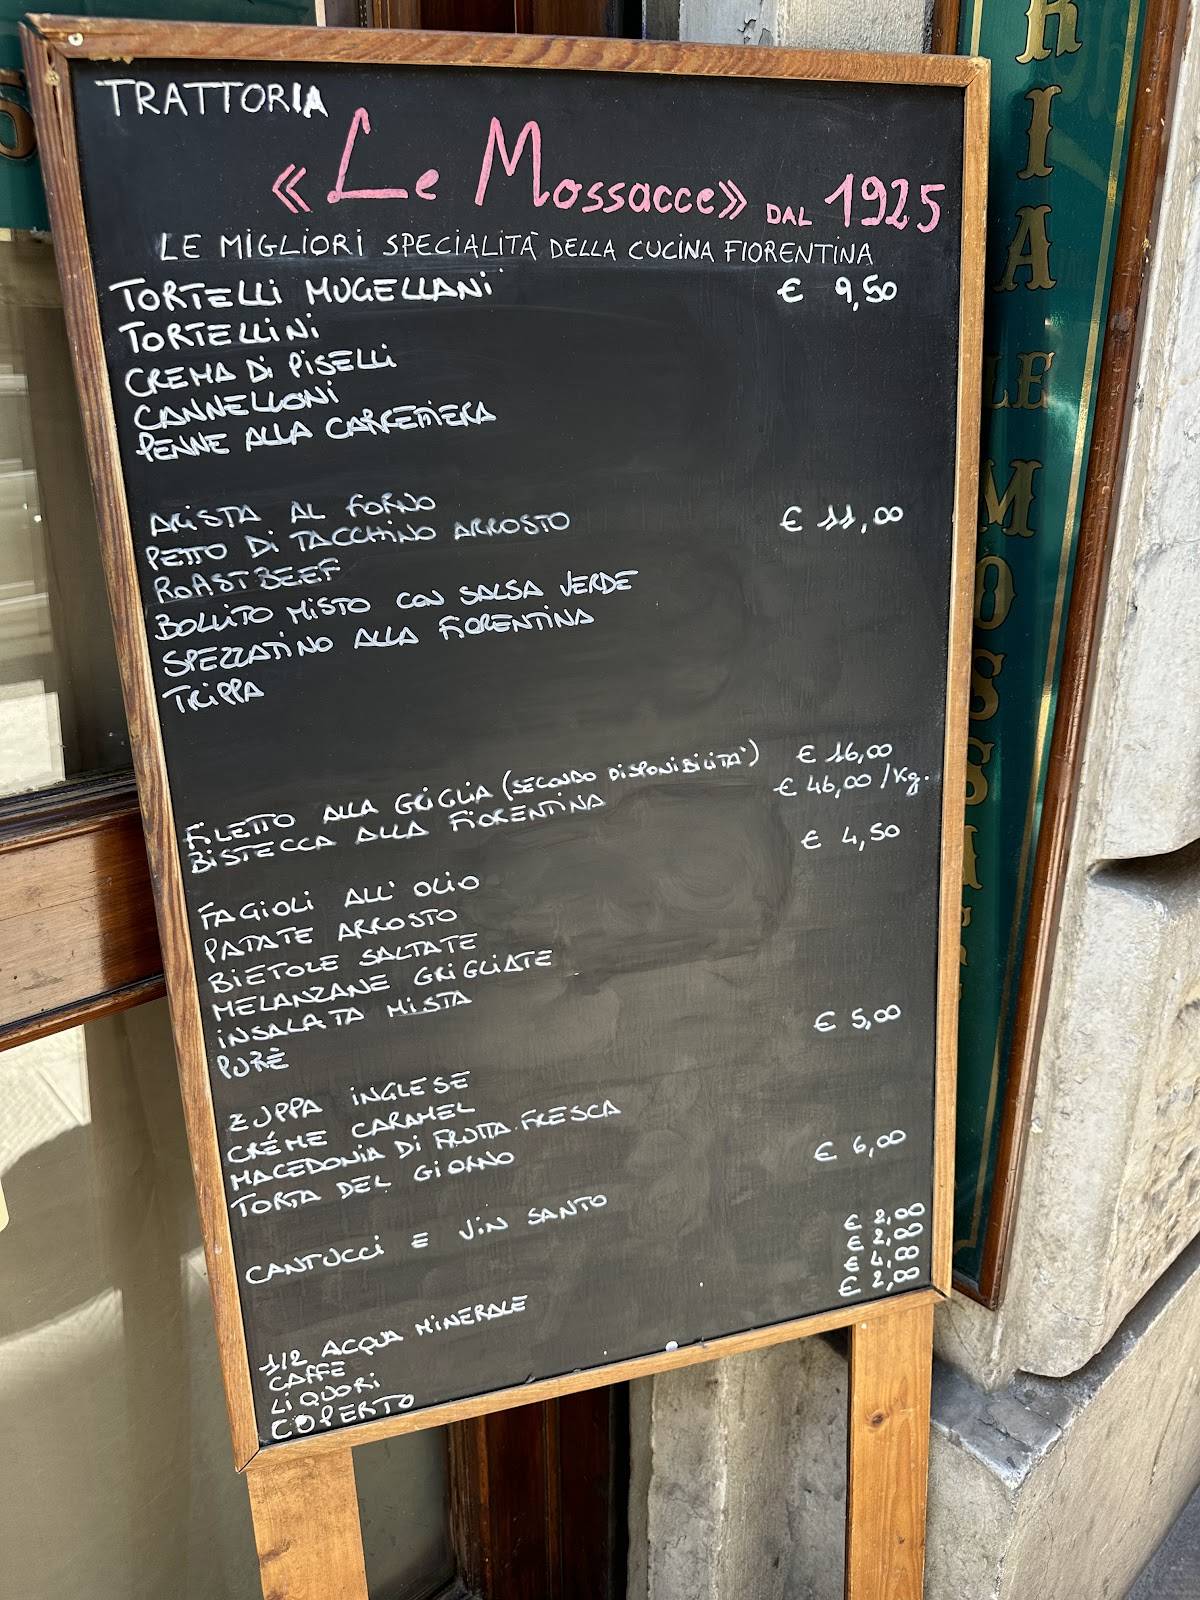 TRATTORIA
«Le Mossacce» DAL 1925
LE MIGLIORI SPECIALITÀ DELLA CUCINA FIORENTINA
TORTELLI MUGELLANI € 9,50
TORTELLINI
CREMA DI PISELLI
CANNELLONI
PENNE ALLA CARRETTIERA
ARISTA AL FORNO € 11,00
PETTO DI TACCHINO ARROSTO
ROASTBEEF
BOLLITO MISTO CON SALSA VERDE
SPEZZATINO ALLA FIORENTINA
TRIPPA
FILETTO ALLA GRIGLIA (SECONDO DISPONIBILITA') € 16,00
BISTECCA ALLA FIORENTINA € 46,00/Kg.
FAGIOLI ALL' OLIO € 4,50
PATATE ARROSTO
BIETOLE SALTATE
MELANZANE GRIGLIATE
INSALATA MISTA
PURÈ
ZUPPA INGLESE € 5,00
CRÉME CARAMEL
MACEDONIA DI FRUTTA FRESCA
TORTA DEL GIORNO
CANTUCCI E VIN SANTO € 6,00
1/2 ACQUA MINERALE € 2,00
CAFFE € 2,00
LIQUORI € 4,00
COPERTO € 2,00
RIA
LE
MOSSAC